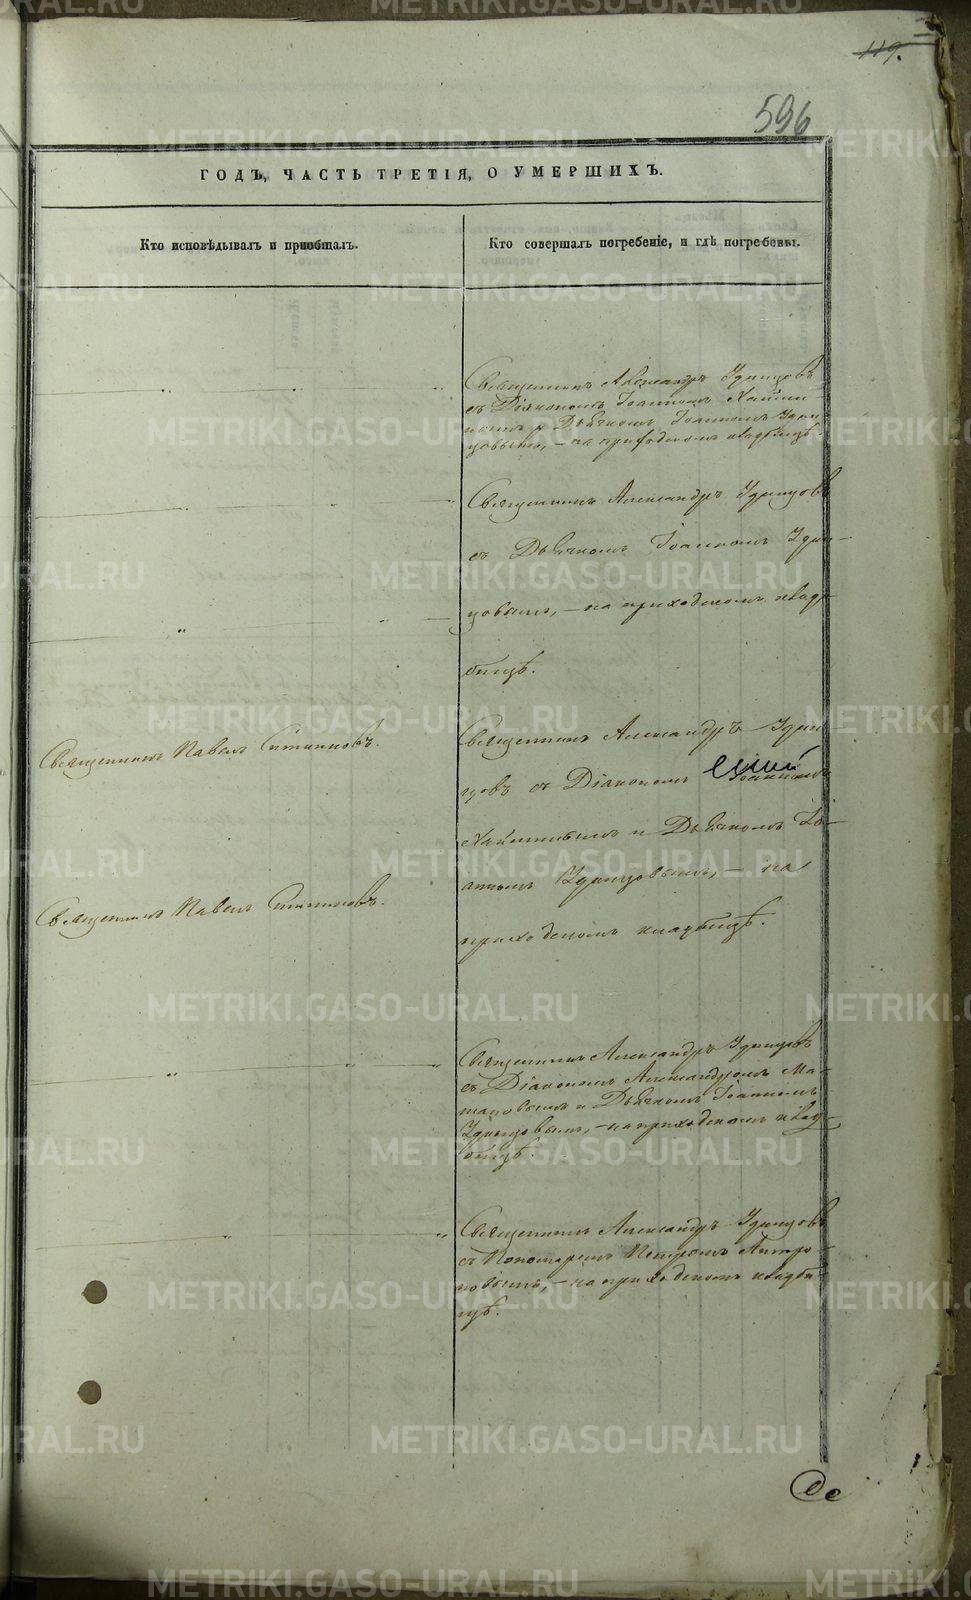 119.
596
ГОДЪ, ЧАСТЬ ТРЕТІЯ, О УМЕРШИХЪ.
Кто исповѣдывалъ и пріобщалъ.
Кто совершалъ погребеніе, и гдѣ погребены.
Священникъ Александръ Удинцовъ
съ Діакономъ Іоанномъ
и Дьячкомъ Іоанномъ Удин
цовымъ, – на приходскомъ кладбищѣ
Священникъ Александръ Удинцовъ
съ Дьячкомъ Іоанномъ Удин-
цовымъ, – на приходскомъ клад-
бищѣ.
Священникъ Павелъ
Священникъ Александръ Удин
цовъ съ Діакономъ Іоанномъ
и Дьячкомъ Іо-
анномъ Удинцовымъ, – на
Священникъ Павелъ
приходскомъ кладбищѣ.
Священникъ Александръ Удинцовъ
съ Діакономъ Александромъ Ма-
и Дьячкомъ Іоанномъ
Удинцовымъ, – на приходскомъ клад-
бищѣ.
Священникъ Александръ Удинцовъ
съ Пономаремъ Петромъ
– на приходскомъ кладби-
щѣ.
METRIKI.GASO-URAL.RU